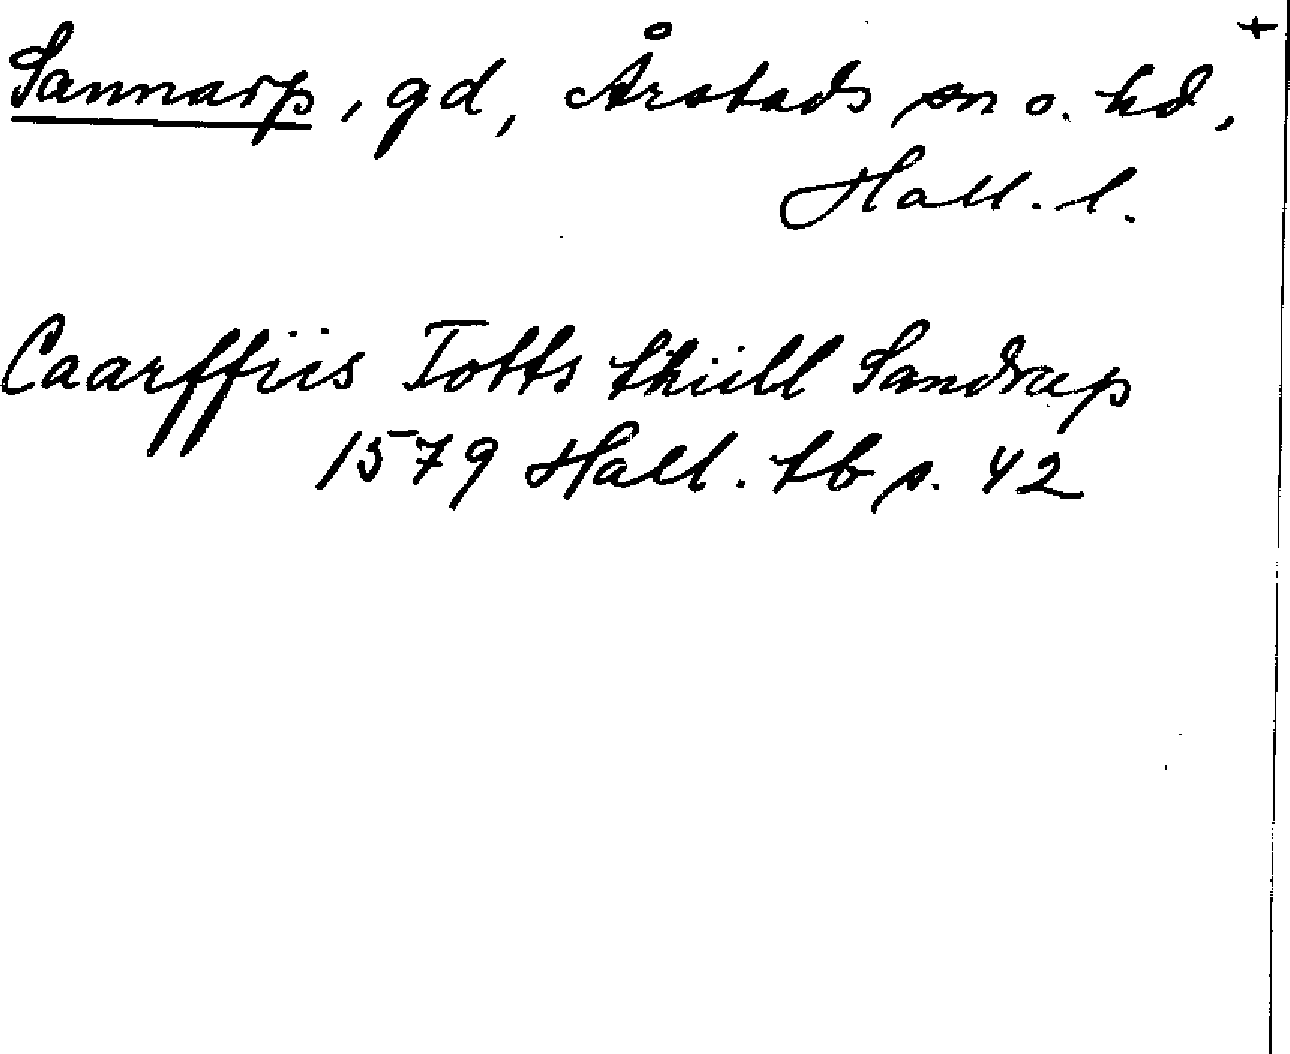 +
Sannarp, gd, Årstads sn o. hd,
Hall. l.
Caarffiis Totts thiill Sandrup
1579 Hall. tb s. 42